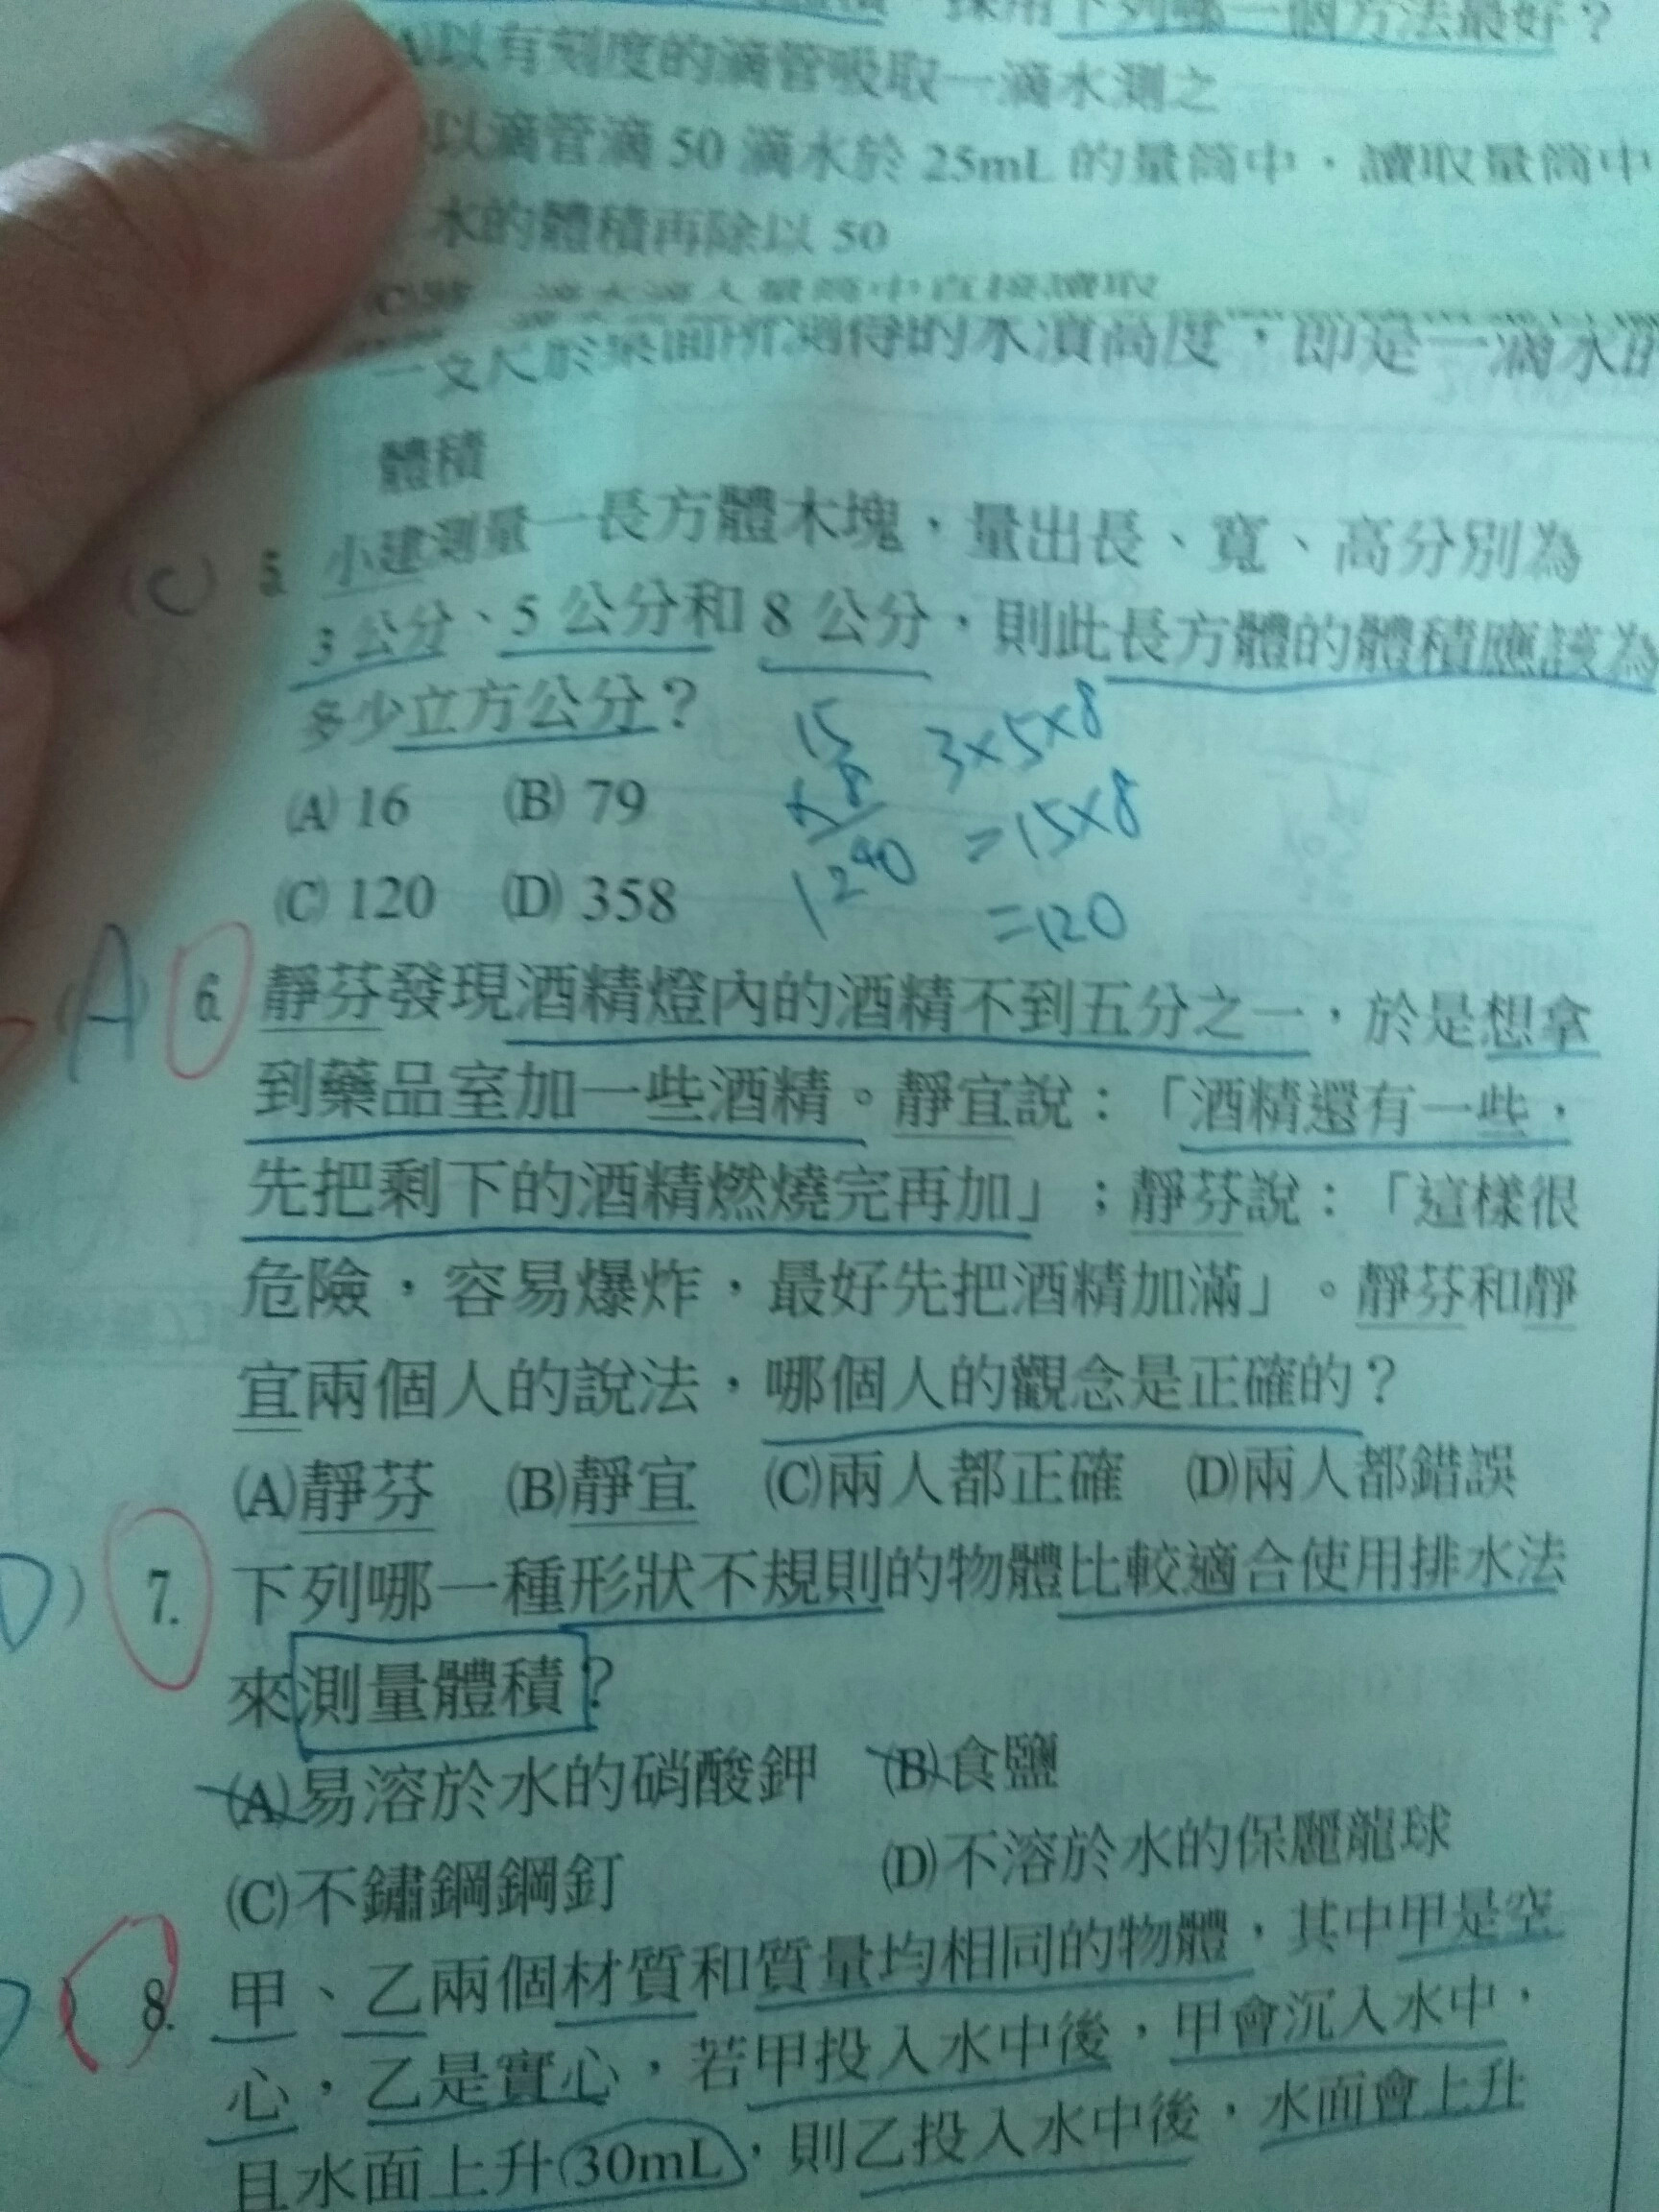 採用下列哪一個方法最好？
以有刻度的滴管吸取一滴水測之
以滴管滴 50 滴水於 25mL 的量筒中，讀取量筒中
水的體積再除以 50
滴水滴入量筒中直接讀取
所測得的水漬高度，即是一滴水的
體積
(C) 5. 小建測量一長方體木塊，量出長、寬、高分別為
3 公分、5 公分和 8 公分，則此長方體的體積應該為
多少立方公分？
15 3×5×8
(A) 16 (B) 79
×8 =15×8
1240
(C) 120 (D) 358
=120
(A) 6. 靜芬發現酒精燈內的酒精不到五分之一，於是想拿
到藥品室加一些酒精。靜宜說：「酒精還有一些，
先把剩下的酒精燃燒完再加」；靜芬說：「這樣很
危險，容易爆炸，最好先把酒精加滿」。靜芬和靜
宜兩個人的說法，哪個人的觀念是正確的？
(A)靜芬 (B)靜宜 (C)兩人都正確 (D)兩人都錯誤
D) 7. 下列哪一種形狀不規則的物體比較適合使用排水法
來測量體積？
(A)易溶於水的硝酸鉀 (B)食鹽
(C)不鏽鋼鋼釘 (D)不溶於水的保麗龍球
8. 甲、乙兩個材質和質量均相同的物體，其中甲是空
心，乙是實心，若甲投入水中後，甲會沉入水中，
且水面上升30mL，則乙投入水中後，水面會上升